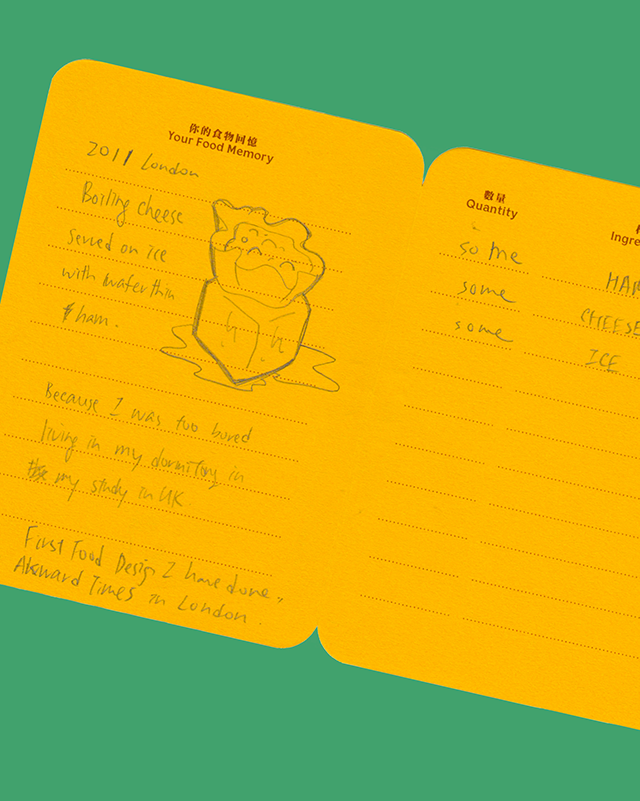 你的食物回憶
Your Food Memory
2011 London
Boiling cheese
served on ice
with wafer thin
ham.
Because I was too bored
living in my dormitory in
my study in UK.
First Food Design I have done,
Akward Times in London.
數量
Quantity
Ingre
some HA
some CHEESE
some ICE